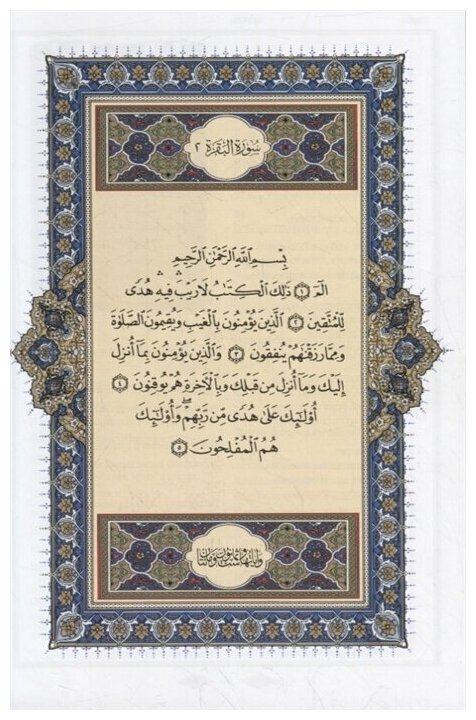 سُورَةُ الْبَقَرَة ٢
بِسْمِ اللَّهِ الرَّحْمَٰنِ الرَّحِيمِ
الم ﴿١﴾ ذَٰلِكَ الْكِتَابُ لَا رَيْبَ ۛ فِيهِ ۛ هُدًى
لِلْمُتَّقِينَ ﴿٢﴾ الَّذِينَ يُؤْمِنُونَ بِالْغَيْبِ وَيُقِيمُونَ الصَّلَوٰةَ
وَمِمَّا رَزَقْنَٰهُمْ يُنْفِقُونَ ﴿٣﴾ وَالَّذِينَ يُؤْمِنُونَ بِمَآ أُنْزِلَ
إِلَيْكَ وَمَآ أُنْزِلَ مِنْ قَبْلِكَ وَبِالْآخِرَةِ هُمْ يُوقِنُونَ ﴿٤﴾
أُولَٰٓئِكَ عَلَىٰ هُدًى مِّن رَّبِّهِمْ ۖ وَأُولَٰٓئِكَ
هُمُ الْمُفْلِحُونَ ﴿٥﴾